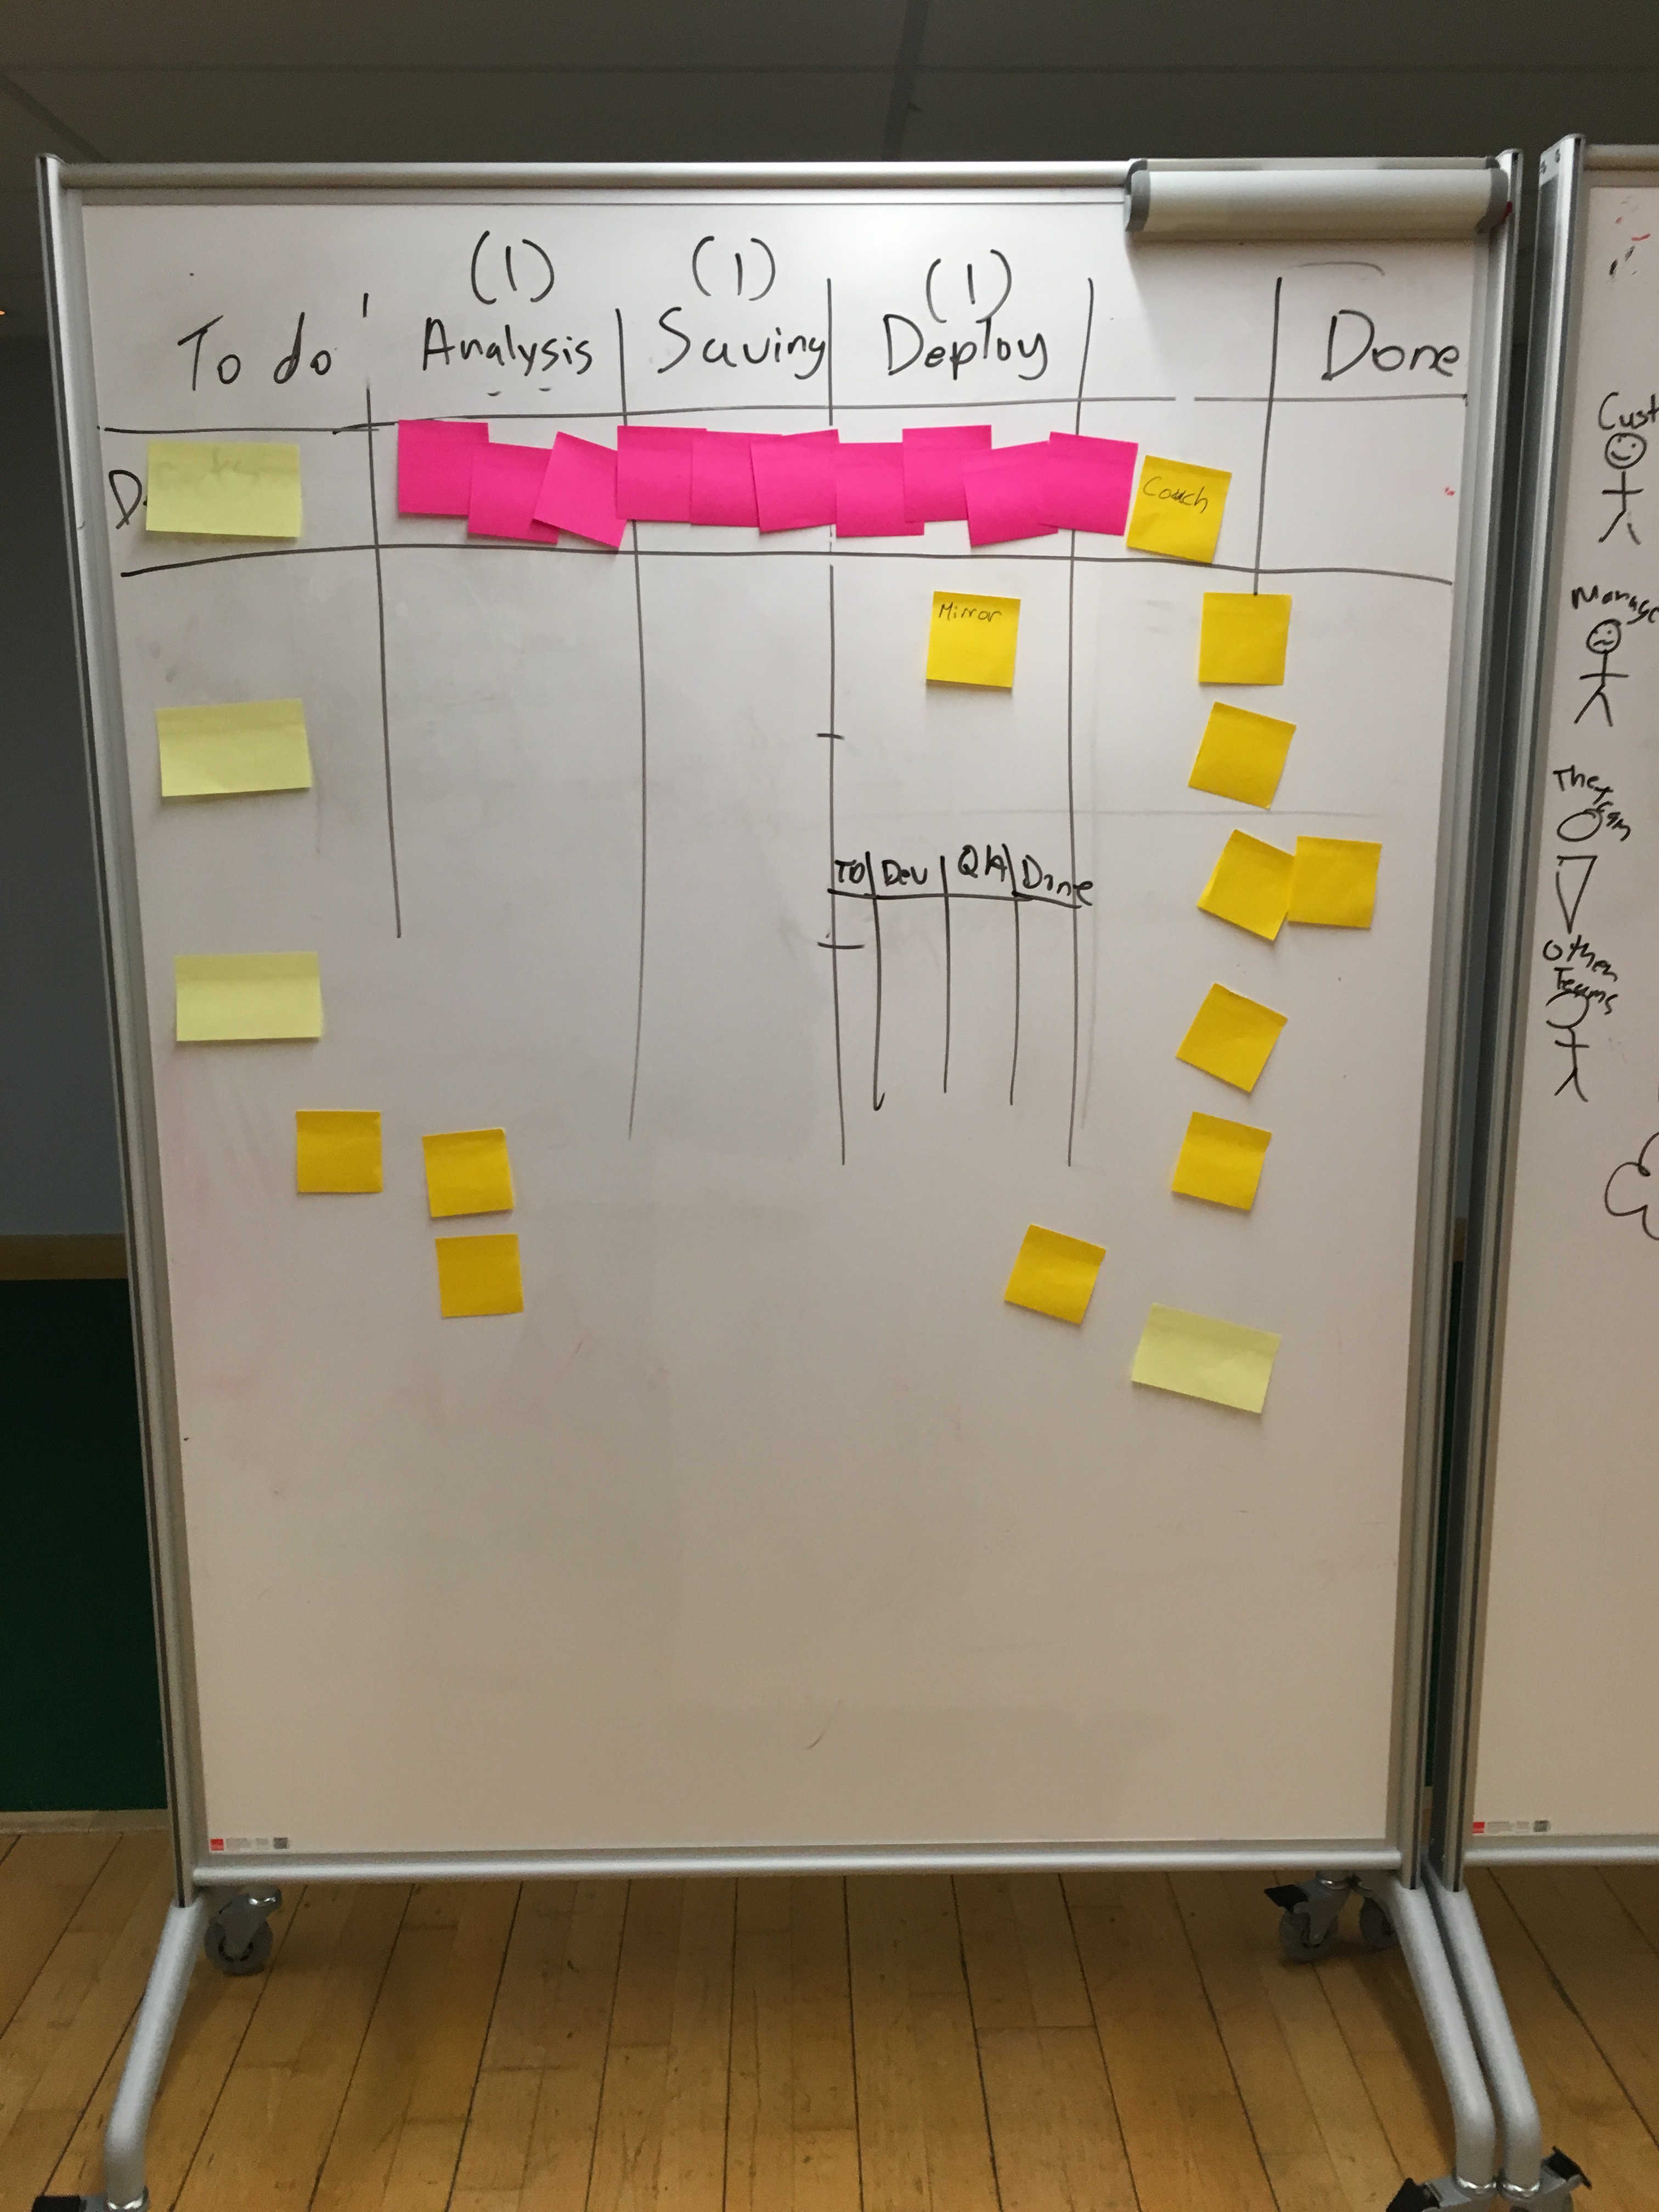 (1) (1) (1)
To do Analysis Saving Deploy Done
Couch
Mirror
TO Dev QA Done
Cust
Manage
The Team
Other
Teams